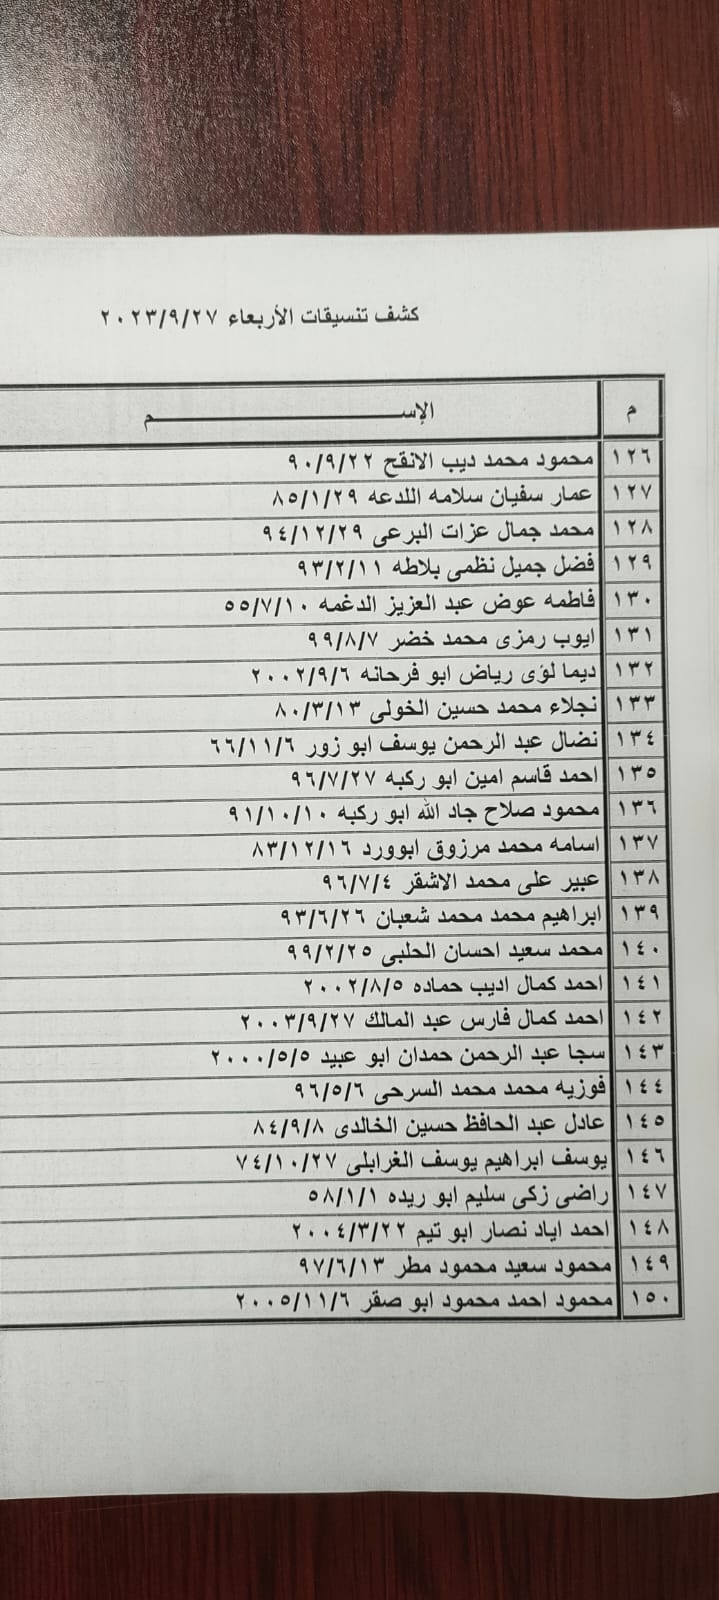 كشف تنسيقات الأربعاء ٢٠٢٣/٩/٢٧
م الإســـــــــــــــم
١٢٦ محمود محمد ديب الانقح ٩٠/٩/٢٢
١٢٧ عمار سفيان سلامه اللدعه ٨٥/١/٢٩
١٢٨ محمد جمال عزات البرعى ٩٤/١٢/٢٩
١٢٩ فضل جميل نظمى بلاطه ٩٣/٢/١١
١٣٠ فاطمه عوض عبد العزيز الدغمه ٥٥/٧/١٠
١٣١ ايوب رمزى محمد خضر ٩٩/٨/٧
١٣٢ ديما لؤى رياض ابو فرحانه ٢٠٠٢/٩/٦
١٣٣ نجلاء محمد حسين الخولى ٨٠/٣/١٣
١٣٤ نضال عبد الرحمن يوسف ابو زور ٦٦/١١/٦
١٣٥ احمد قاسم امين ابو ركبه ٩٦/٧/٢٧
١٣٦ محمود صلاح جاد الله ابو ركبه ٩١/١٠/١٠
١٣٧ اسامه محمد مرزوق ابوورد ٨٣/١٢/١٦
١٣٨ عبير على محمد الاشقر ٩٦/٧/٤
١٣٩ ابراهيم محمد محمد شعبان ٩٣/٦/٢٦
١٤٠ محمد سعيد احسان الحلبى ٩٩/٢/٢٥
١٤١ احمد كمال اديب حماده ٢٠٠٢/٨/٥
١٤٢ احمد كمال فارس عبد المالك ٢٠٠٣/٩/٢٧
١٤٣ سجا عبد الرحمن حمدان ابو عبيد ٢٠٠٠/٥/٥
١٤٤ فوزيه محمد محمد السرحى ٩٦/٥/٦
١٤٥ عادل عبد الحافظ حسين الخالدى ٨٤/٩/٨
١٤٦ يوسف ابراهيم يوسف الغرابلى ٧٤/١٠/٢٧
١٤٧ راضى زكى سليم ابو ريده ٥٨/١/١
١٤٨ احمد اياد نصار ابو تيم ٢٠٠٤/٣/٢٢
١٤٩ محمود سعيد محمود مطر ٩٧/٦/١٣
١٥٠ محمود احمد محمود ابو صقر ٢٠٠٥/١١/٦